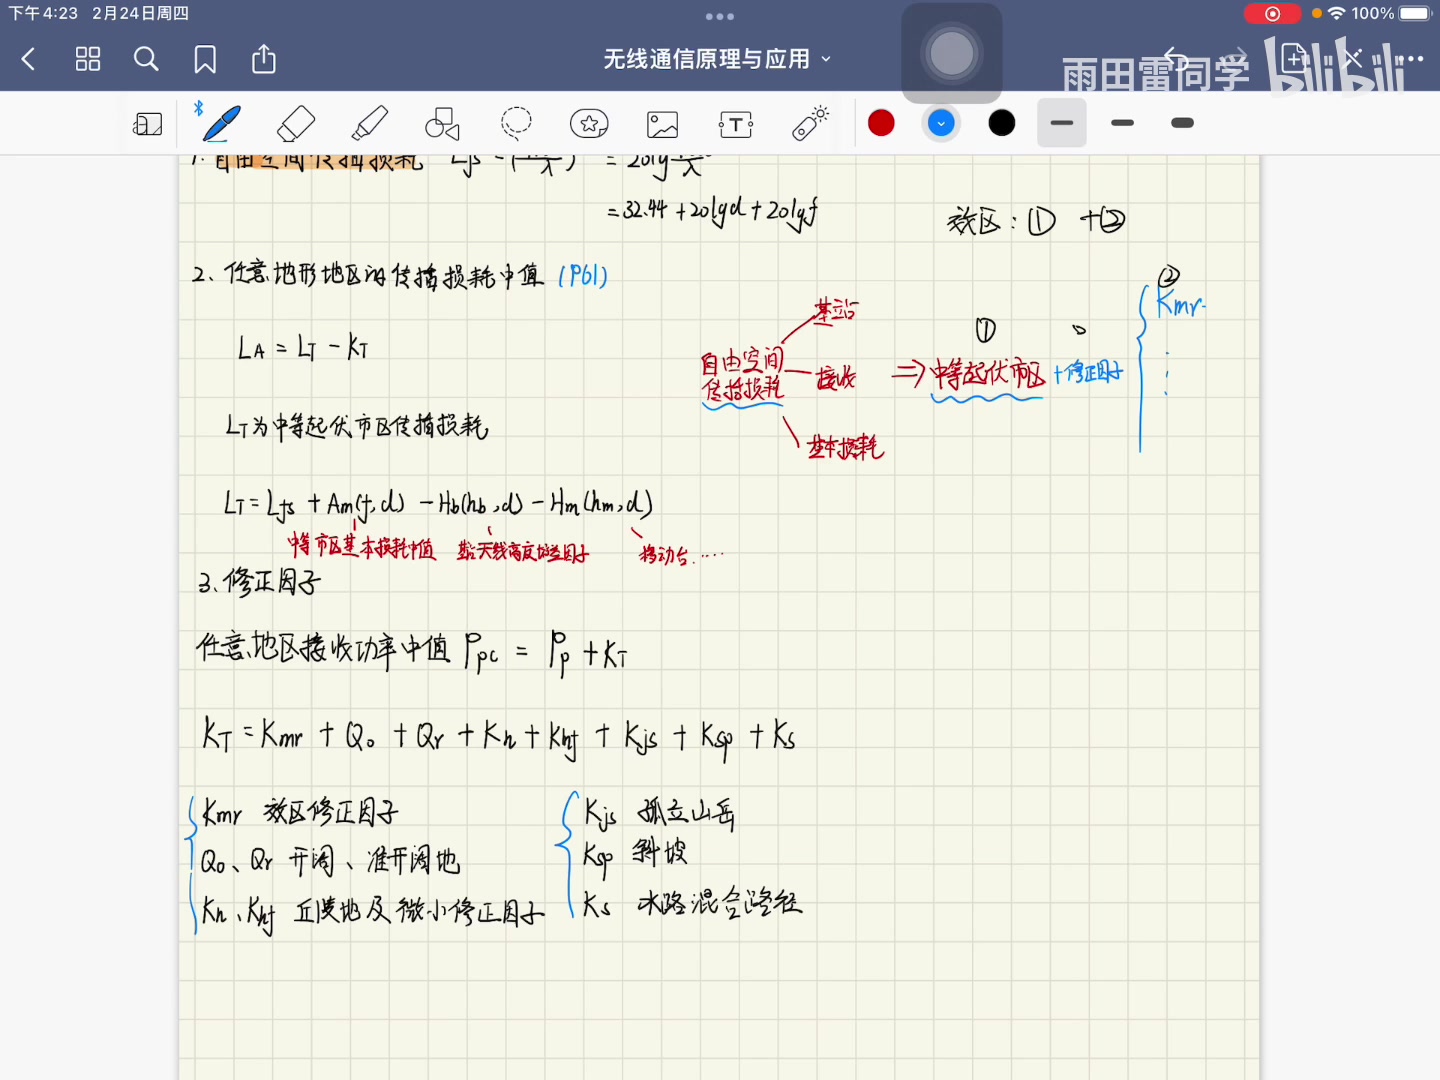 下午4:23 2月24日周四
100%
无线通信原理与应用
雨田雷同学 bilibili
1. 自由空间传播损耗 Lfs
= 32.44 + 20lgd + 20lgf
效区：① +②
2、任意地形地区的传播损耗中值 (P61)
LA = LT - KT
LT为中等起伏市区传播损耗
LT = Lfs + Am(f,d) - Hb(hb,d) - Hm(hm,d)
中等市区基本损耗中值 基站天线高度增益因子 移动台.....
自由空间
传播损耗
基站
接收
基本损耗
① ②
=> 中等起伏市区 + 修正因子
②
Kmr
3、修正因子
任意地区接收功率中值 Ppc = Pp + KT
KT = Kmr + Qo + Qr + Kh + Khf + Kjs + Ksp + Ks
Kmr 效区修正因子
Qo、Qr 开阔、准开阔地
Kh、Khf 丘陵地及微小修正因子
Kjs 孤立山岳
Ksp 斜坡
Ks 水路混合路径